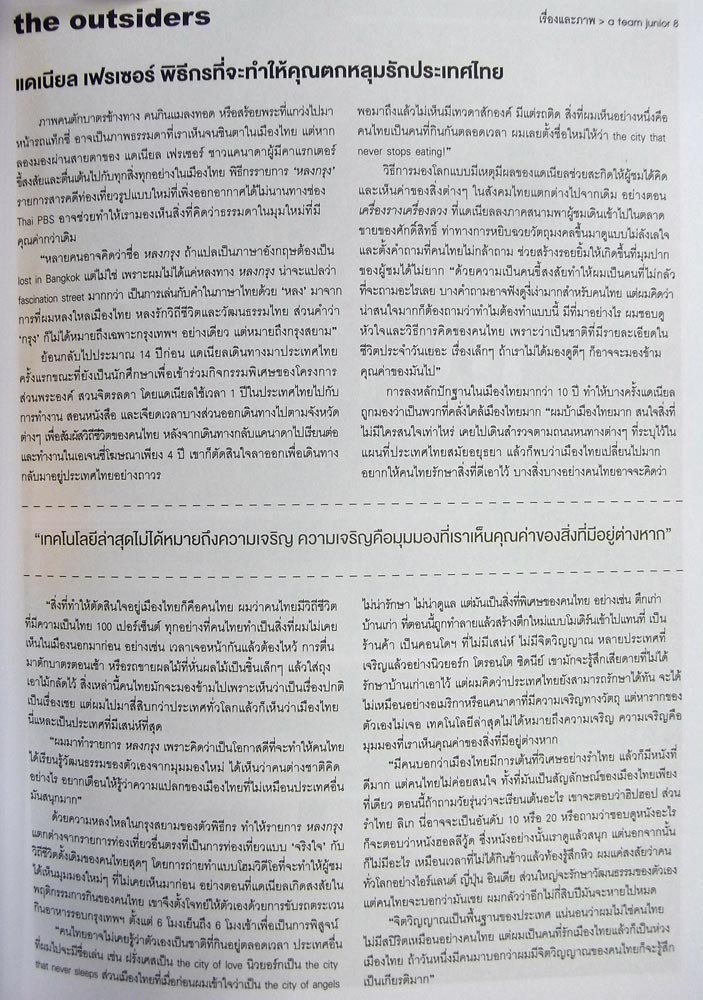 the outsiders
เรื่องและภาพ > a team junior 8
แดเนียล เฟรเซอร์ พิธีกรที่จะทำให้คุณตกหลุมรักประเทศไทย
ภาพคนตักบาตรข้างทาง คนกินแมลงทอด หรือสร้อยพระที่แกว่งไปมา
หน้ารถแท็กซี่ อาจเป็นภาพธรรมดาที่เราเห็นจนชินตาในเมืองไทย แต่หาก
ลองมองผ่านสายตาของ แดเนียล เฟรเซอร์ ชาวแคนาดาผู้มีคาแรกเตอร์
ขี้สงสัยและตื่นเต้นไปกับทุกสิ่งทุกอย่างในเมืองไทย พิธีกรรายการ ‘หลงกรุง’
รายการสารคดีท่องเที่ยวรูปแบบใหม่ที่เพิ่งออกอากาศได้ไม่นานทางช่อง
Thai PBS อาจช่วยทำให้เรามองเห็นสิ่งที่คิดว่าธรรมดาในมุมใหม่ที่มี
คุณค่ากว่าเดิม
“หลายคนอาจคิดว่าชื่อ หลงกรุง ถ้าแปลเป็นภาษาอังกฤษต้องเป็น
lost in Bangkok แต่ไม่ใช่ เพราะผมไม่ได้แค่หลงทาง หลงกรุง น่าจะแปลว่า
fascination street มากกว่า เป็นการเล่นกับคำในภาษาไทยด้วย ‘หลง’ มาจาก
การที่ผมหลงใหลเมืองไทย หลงรักวิถีชีวิตและวัฒนธรรมไทย ส่วนคำว่า
‘กรุง’ ก็ไม่ได้หมายถึงเฉพาะกรุงเทพฯ อย่างเดียว แต่หมายถึงกรุงสยาม”
ย้อนกลับไปประมาณ 14 ปีก่อน แดเนียลเดินทางมาประเทศไทย
ครั้งแรกขณะที่ยังเป็นนักศึกษาเพื่อเข้าร่วมกิจกรรมพิเศษของโครงการ
ส่วนพระองค์ สวนจิตรลดา โดยแดเนียลใช้เวลา 1 ปีในประเทศไทยไปกับ
การทำงาน สอนหนังสือ และเจียดเวลาบางส่วนออกเดินทางไปตามจังหวัด
ต่างๆ เพื่อสัมผัสวิถีชีวิตของคนไทย หลังจากเดินทางกลับแคนาดาไปเรียนต่อ
และทำงานในเอเจนซี่โฆษณาเพียง 4 ปี เขาก็ตัดสินใจลาออกเพื่อเดินทาง
กลับมาอยู่ประเทศไทยอย่างถาวร
พอมาถึงแล้วไม่เห็นมีเทวดาสักองค์ มีแต่รถติด สิ่งที่ผมเห็นอย่างหนึ่งคือ
คนไทยเป็นคนที่กินกันตลอดเวลา ผมเลยตั้งชื่อใหม่ให้ว่า the city that
never stops eating!”
วิธีการมองโลกแบบมีเหตุมีผลของแดเนียลช่วยสะกิดให้ผู้ชมได้คิด
และเห็นค่าของสิ่งต่างๆ ในสังคมไทยแตกต่างไปจากเดิม อย่างตอน
เครื่องรางเครื่องลวง ที่แดเนียลลงภาคสนามพาผู้ชมเดินเข้าไปในตลาด
ขายของศักดิ์สิทธิ์ ท่าทางการหยิบฉวยวัตถุมงคลขึ้นมาดูแบบไม่ลังเลใจ
และตั้งคำถามที่คนไทยไม่กล้าถาม ช่วยสร้างรอยยิ้มให้เกิดขึ้นที่มุมปาก
ของผู้ชมได้ไม่ยาก “ด้วยความเป็นคนขี้สงสัยทำให้ผมเป็นคนที่ไม่กลัว
ที่จะถามอะไรเลย บางคำถามอาจฟังดูงี่เง่ามากสำหรับคนไทย แต่ผมคิดว่า
น่าสนใจมากก็ต้องถามว่าทำไมต้องทำแบบนี้ มีที่มาอย่างไร ผมชอบดู
หัวใจและวิธีการคิดของคนไทย เพราะว่าเป็นชาติที่มีรายละเอียดใน
ชีวิตประจำวันเยอะ เรื่องเล็กๆ ถ้าเราไม่ได้มองดูดีๆ ก็อาจจะมองข้าม
คุณค่าของมันไป”
การลงหลักปักฐานในเมืองไทยมากว่า 10 ปี ทำให้บางครั้งแดเนียล
ถูกมองว่าเป็นพวกที่คลั่งไคล้เมืองไทยมาก “ผมบ้าเมืองไทยมาก สนใจสิ่งที่
ไม่มีใครสนใจเท่าไหร่ เคยไปเดินสำรวจตามถนนหนทางต่างๆ ที่ระบุไว้ใน
แผนที่ประเทศไทยสมัยอยุธยา แล้วก็พบว่าเมืองไทยเปลี่ยนไปมาก
อยากให้คนไทยรักษาสิ่งที่ดีเอาไว้ บางสิ่งบางอย่างคนไทยอาจจะคิดว่า
“เทคโนโลยีล่าสุดไม่ได้หมายถึงความเจริญ ความเจริญคือมุมมองที่เราเห็นคุณค่าของสิ่งที่มีอยู่ต่างหาก”
“สิ่งที่ทำให้ตัดสินใจอยู่เมืองไทยก็คือคนไทย ผมว่าคนไทยมีวิถีชีวิต
ที่มีความเป็นไทย 100 เปอร์เซ็นต์ ทุกอย่างที่คนไทยทำเป็นสิ่งที่ผมไม่เคย
เห็นในเมืองนอกมาก่อน อย่างเช่น เวลาเจอหน้ากันแล้วต้องไหว้ การตื่น
มาตักบาตรตอนเช้า หรือรถขายผลไม้ที่หั่นผลไม้เป็นชิ้นเล็กๆ แล้วใส่ถุง
เอาไม้กลัดไว้ สิ่งเหล่านี้คนไทยมักจะมองข้ามไปเพราะเห็นว่าเป็นเรื่องปกติ
เป็นเรื่องเชย แต่ผมไปมาสี่สิบกว่าประเทศทั่วโลกแล้วก็เห็นว่าเมืองไทย
นี่แหละเป็นประเทศที่มีเสน่ห์ที่สุด
“ผมมาทำรายการ หลงกรุง เพราะคิดว่าเป็นโอกาสดีที่จะทำให้คนไทย
ได้เรียนรู้วัฒนธรรมของตัวเองจากมุมมองใหม่ ได้เห็นว่าคนต่างชาติคิด
อย่างไร อยากเตือนให้รู้ว่าความแปลกของเมืองไทยที่ไม่เหมือนประเทศอื่น
มันสนุกมาก”
ด้วยความหลงใหลในกรุงสยามของตัวพิธีกร ทำให้รายการ หลงกรุง
แตกต่างจากรายการท่องเที่ยวอื่นตรงที่เป็นการท่องเที่ยวแบบ ‘จริงใจ’ กับ
วิถีชีวิตดั้งเดิมของคนไทยสุดๆ โดยการถ่ายทำแบบโฮมวิดีโอที่จะทำให้ผู้ชม
ได้เห็นมุมมองใหม่ๆ ที่ไม่เคยเห็นมาก่อน อย่างตอนที่แดเนียลเกิดสงสัยใน
พฤติกรรมการกินของคนไทย เขาจึงตั้งโจทย์ให้ตัวเองด้วยการขับรถตระเวน
กินอาหารรอบกรุงเทพฯ ตั้งแต่ 6 โมงเย็นถึง 6 โมงเช้าเพื่อเป็นการพิสูจน์
“คนไทยอาจไม่เคยรู้ว่าตัวเองเป็นชาติที่กินอยู่ตลอดเวลา ประเทศอื่น
ที่ผมไปจะมีชื่อเล่น เช่น ฝรั่งเศสเป็น the city of love นิวยอร์กเป็น the city
that never sleeps ส่วนเมืองไทยที่เมื่อก่อนผมเข้าใจว่าเป็น the city of angels
ไม่น่ารักษา ไม่น่าดูแล แต่มันเป็นสิ่งที่พิเศษของคนไทย อย่างเช่น ตึกเก่า
บ้านเก่า ที่ตอนนี้ถูกทำลายแล้วสร้างตึกใหม่แบบโมเดิร์นเข้าไปแทนที่ เป็น
ร้านค้า เป็นคอนโดฯ ที่ไม่มีเสน่ห์ ไม่มีจิตวิญญาณ หลายประเทศที่
เจริญแล้วอย่างนิวยอร์ก โตรอนโต ซิดนีย์ เขามักจะรู้สึกเสียดายที่ไม่ได้
รักษาบ้านเก่าเอาไว้ แต่ผมคิดว่าประเทศไทยยังสามารถรักษาได้ทัน จะได้
ไม่เหมือนอย่างอเมริกาหรือแคนาดาที่มีความเจริญทางวัตถุ แต่หารากของ
ตัวเองไม่เจอ เทคโนโลยีล่าสุดไม่ได้หมายถึงความเจริญ ความเจริญคือ
มุมมองที่เราเห็นคุณค่าของสิ่งที่มีอยู่ต่างหาก
“มีคนบอกว่าเมืองไทยมีการเต้นที่วิเศษอย่างรำไทย แล้วก็มีหนังที่
ดีมาก แต่คนไทยไม่ค่อยสนใจ ทั้งที่มันเป็นสัญลักษณ์ของเมืองไทยเพียง
ที่เดียว ตอนนี้ถ้าถามวัยรุ่นว่าจะเรียนเต้นอะไร เขาจะตอบว่าฮิปฮอป ส่วน
รำไทย ลิเก นี่อาจจะเป็นอันดับ 10 หรือ 20 หรือถามว่าชอบดูหนังอะไร
ก็จะตอบว่าหนังฮอลลีวู้ด ซึ่งหนังอย่างนั้นเราดูแล้วสนุก แต่นอกจากนั้น
ก็ไม่มีอะไร เหมือนเวลาที่ไม่ได้กินข้าวแล้วท้องรู้สึกหิว ผมแค่สงสัยว่าคน
ทั่วโลกอย่างไอร์แลนด์ ญี่ปุ่น อินเดีย ส่วนใหญ่จะรักษาวัฒนธรรมของตัวเอง
แต่คนไทยจะบอกว่ามันเชย ผมกลัวว่าอีกไม่กี่สิบปีมันจะหายไปหมด
“จิตวิญญาณเป็นพื้นฐานของประเทศ แน่นอนว่าผมไม่ใช่คนไทย
ไม่มีสปิริตเหมือนอย่างคนไทย แต่ผมเป็นคนที่รักเมืองไทยแล้วก็เป็นห่วง
เมืองไทย ถ้าวันหนึ่งมีคนมาบอกว่าผมมีจิตวิญญาณของคนไทยก็จะรู้สึก
เป็นเกียรติมาก”